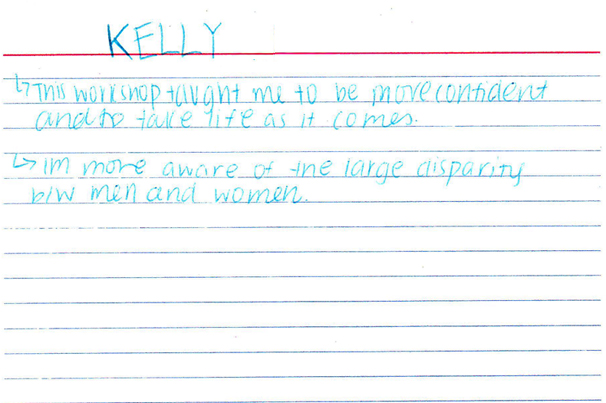 KELLY
↳ This workshop taught me to be more confident
and to take life as it comes.
↳ Im more aware of the large disparity
b/w men and women.